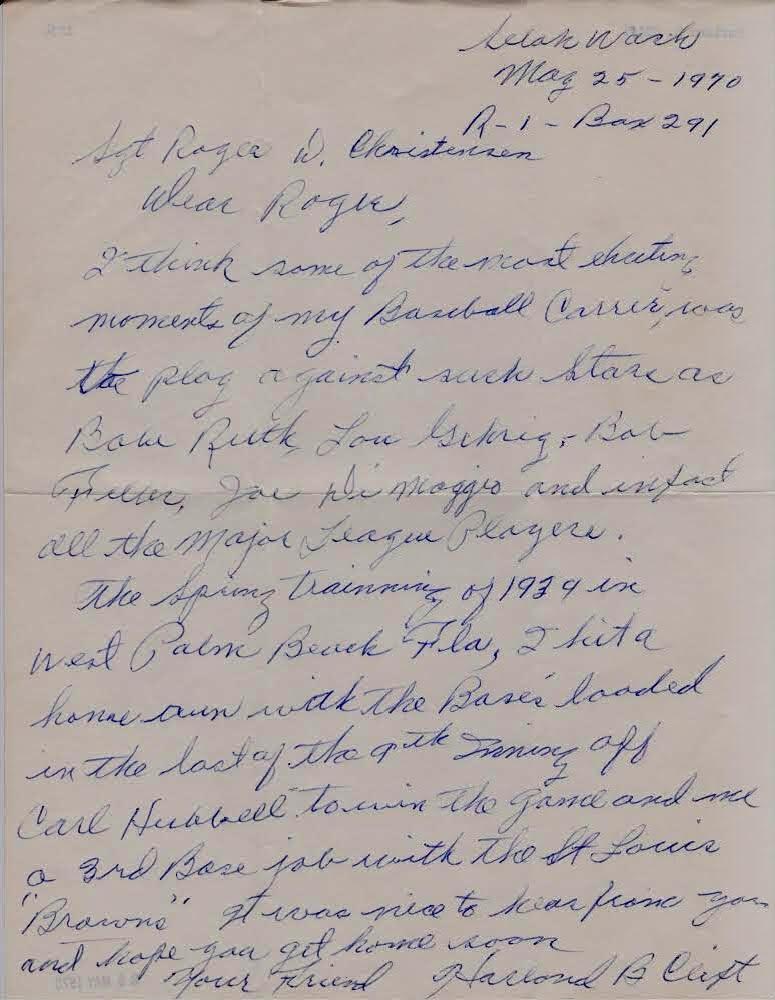 Selah Wash
May 25 - 1970
R - 1 - Box 291
Sgt Roger D. Christensen
Dear Roger,
I think some of the most exciting
moments of my Baseball Carrer, was
the play against such Stars as
Babe Ruth, Lou Gehrig, Bob
Feller, Joe Di Maggio and infact
all the Major League Players.
The Spring trainning of 1934 in
West Palm Beach Fla, I hit a
home run with the Bases loaded
in the last of the 9th Inning off
Carl Hubbell to win the game and me
a 3rd Base job with the St Louis
"Browns" It was nice to hear from you
and hope you get home soon
Your Friend Harlond B Clift